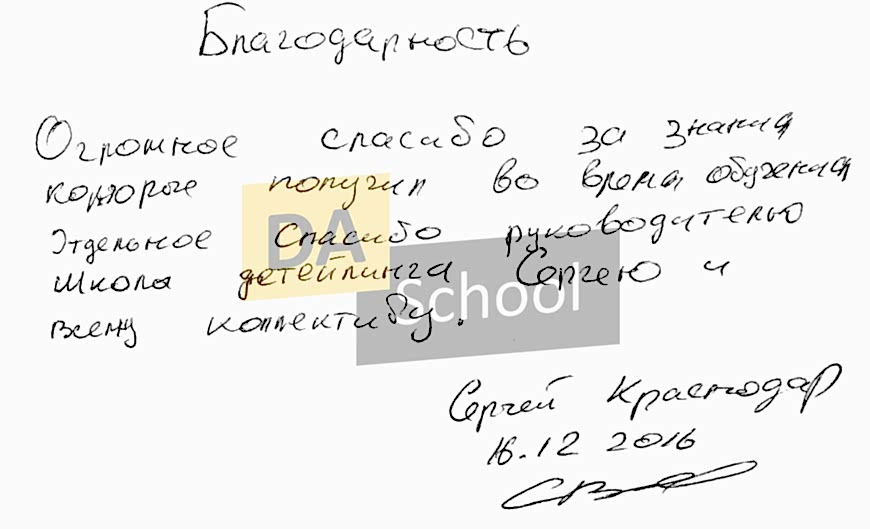 Благодарность
Огромное спасибо за знания
которые получил во время обучения
Отдельное спасибо руководителю
школы детейлинга Сергею и
всему коллективу.
DA
School
Сергей Краснодар
16.12 2016